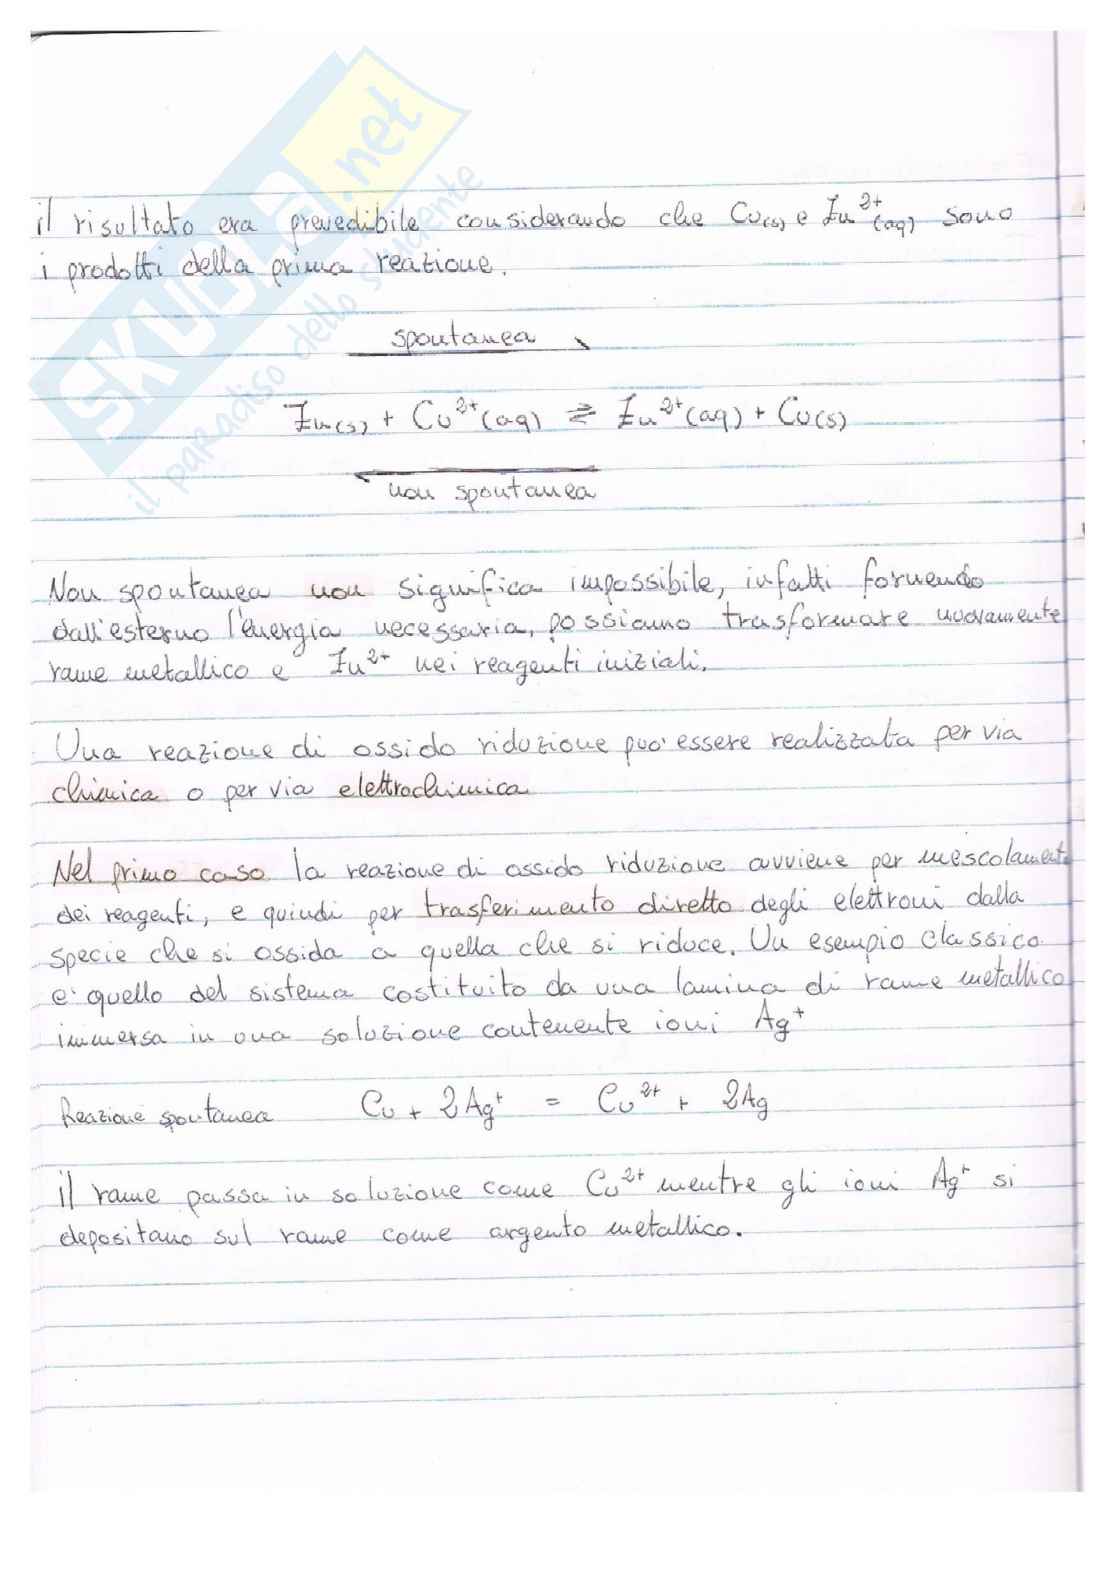 SKUOLA.net
il paradiso dello studente
il risultato era prevedibile considerando che Cu(s) e Zn²⁺(aq) sono
i prodotti della prima reazione.
spontanea
Zn(s) + Cu²⁺(aq) ⇄ Zn²⁺(aq) + Cu(s)
non spontanea
Non spontanea non significa impossibile, infatti fornendo
dall'esterno l'energia necessaria, possiamo trasformare nuovamente
rame metallico e Zn²⁺ nei reagenti iniziali.
Una reazione di ossido riduzione puo' essere realizzata per via
chimica o per via elettrochimica
Nel primo caso la reazione di ossido riduzione avviene per mescolamento
dei reagenti, e quindi per trasferimento diretto degli elettroni dalla
specie che si ossida a quella che si riduce. Un esempio classico
e' quello del sistema costituito da una lamina di rame metallico
immersa in una soluzione contenente ioni Ag⁺
Reazione spontanea Cu + 2Ag⁺ = Cu²⁺ + 2Ag
il rame passa in soluzione come Cu²⁺ mentre gli ioni Ag⁺ si
depositano sul rame come argento metallico.